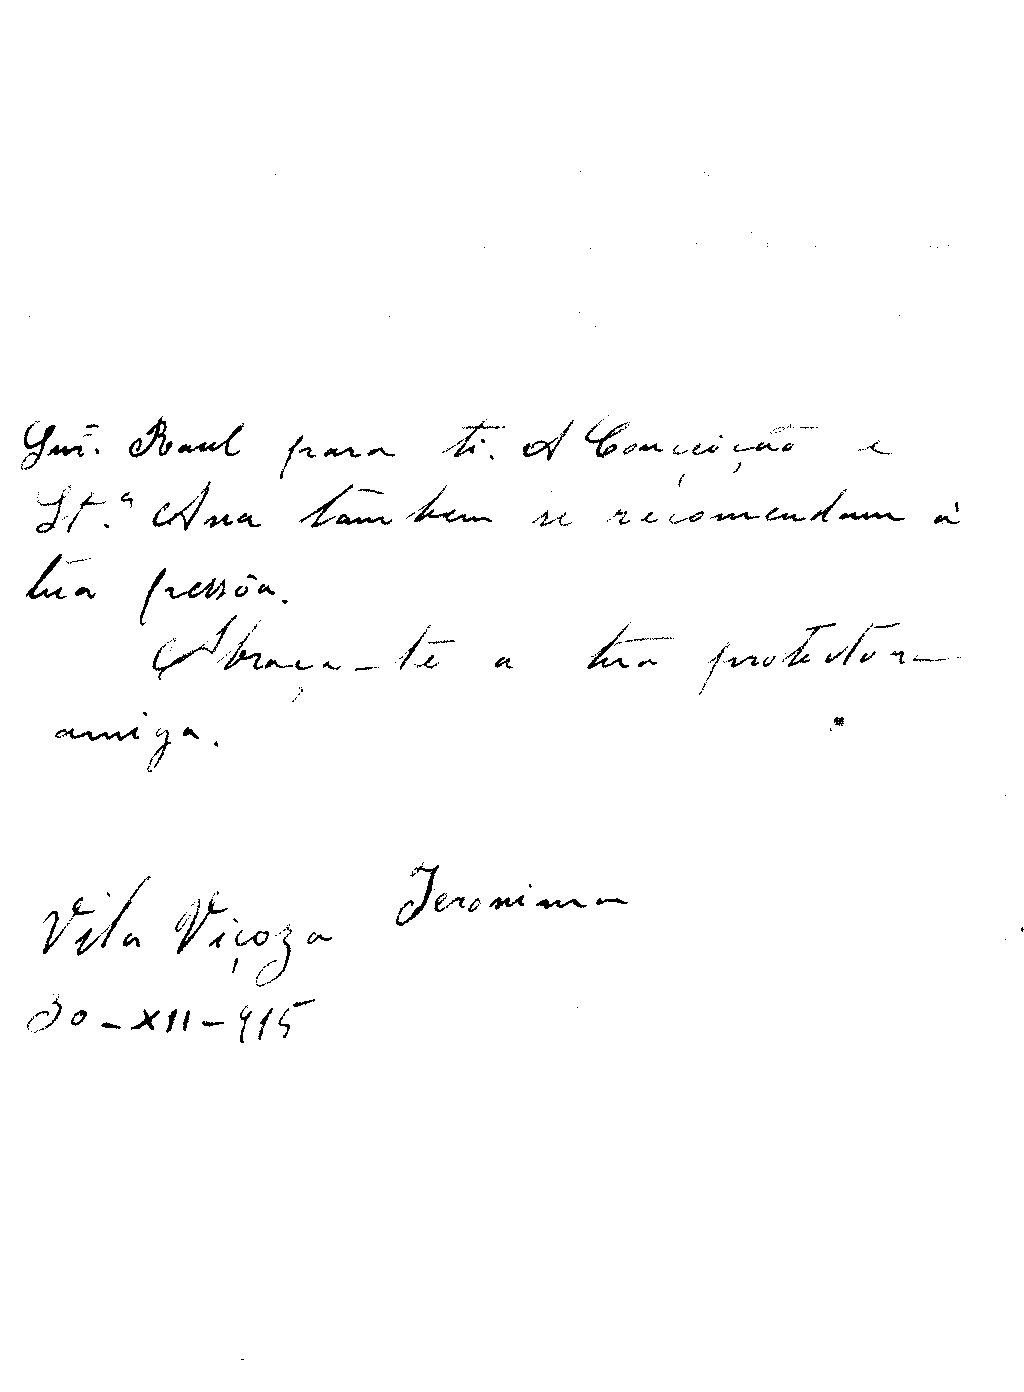 Snr. Raul para ti. A Conçeição e
St.ª Ana tambem se recomendam á
tua pessôa.
Abraça-te a tua protectora
amiga.
Jeronima
Vila Viçoza
30-XII-915